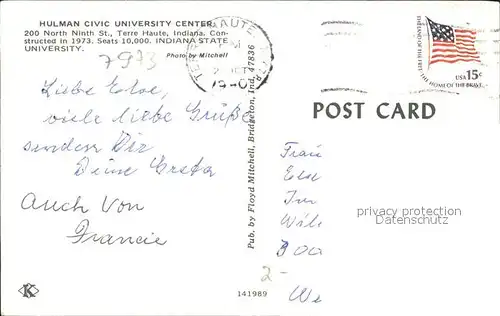 HULMAN CIVIC UNIVERSITY CENTER
200 North Ninth St., Terre Haute, Indiana. Con-
structed in 1973. Seats 10,000. INDIANA STATE
UNIVERSITY.
Photo by Mitchell
7973
TERRE HAUTE
Liebe Else,
viele liebe Grüße
senden Dir
Deine Greta
Auch Von
Francie
Pub. by Floyd Mitchell, Bridgeton, Ind. 47836
THE LAND OF THE FREE
THE HOME OF THE BRAVE
USA 15c
POST CARD
Frau
Else
Im
privacy protection
Datenschutz
2-
We
K
141989